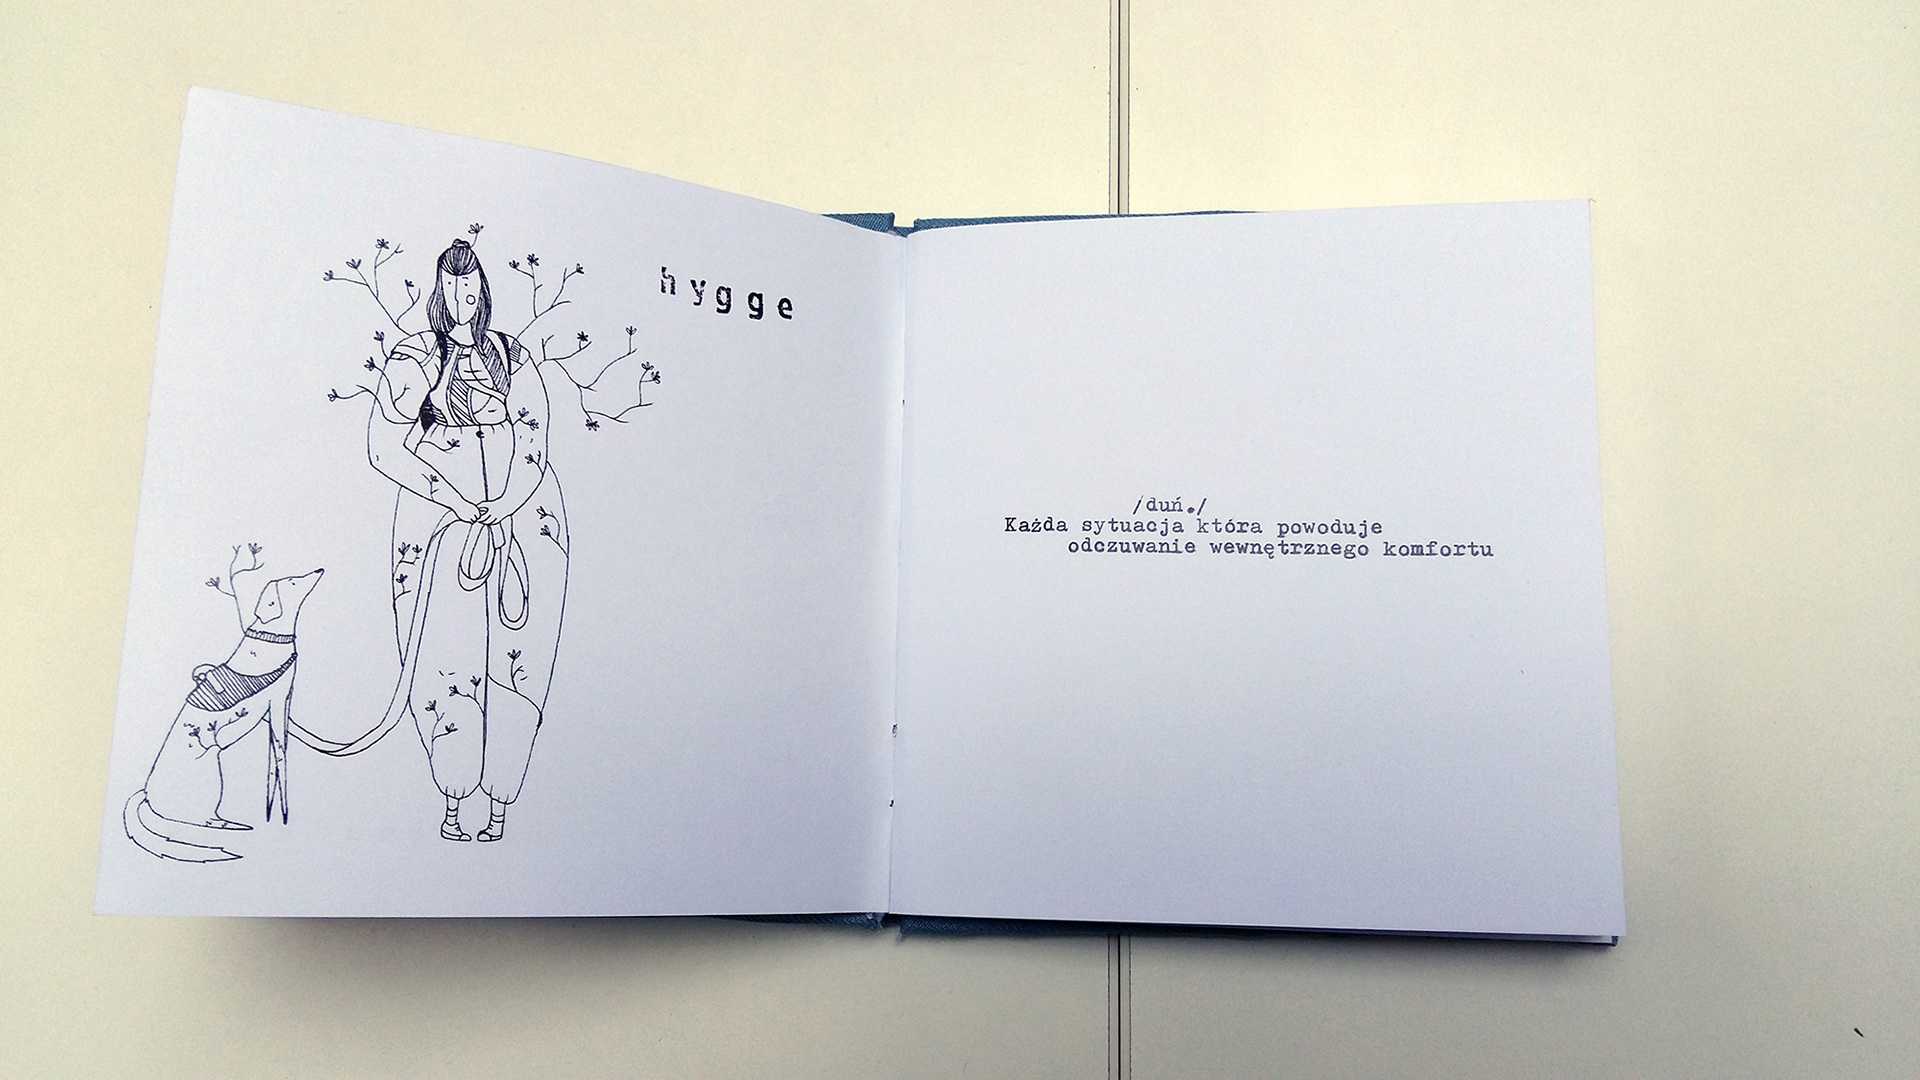 hygge
/duń./
Każda sytuacja która powoduje
odczuwanie wewnętrznego komfortu